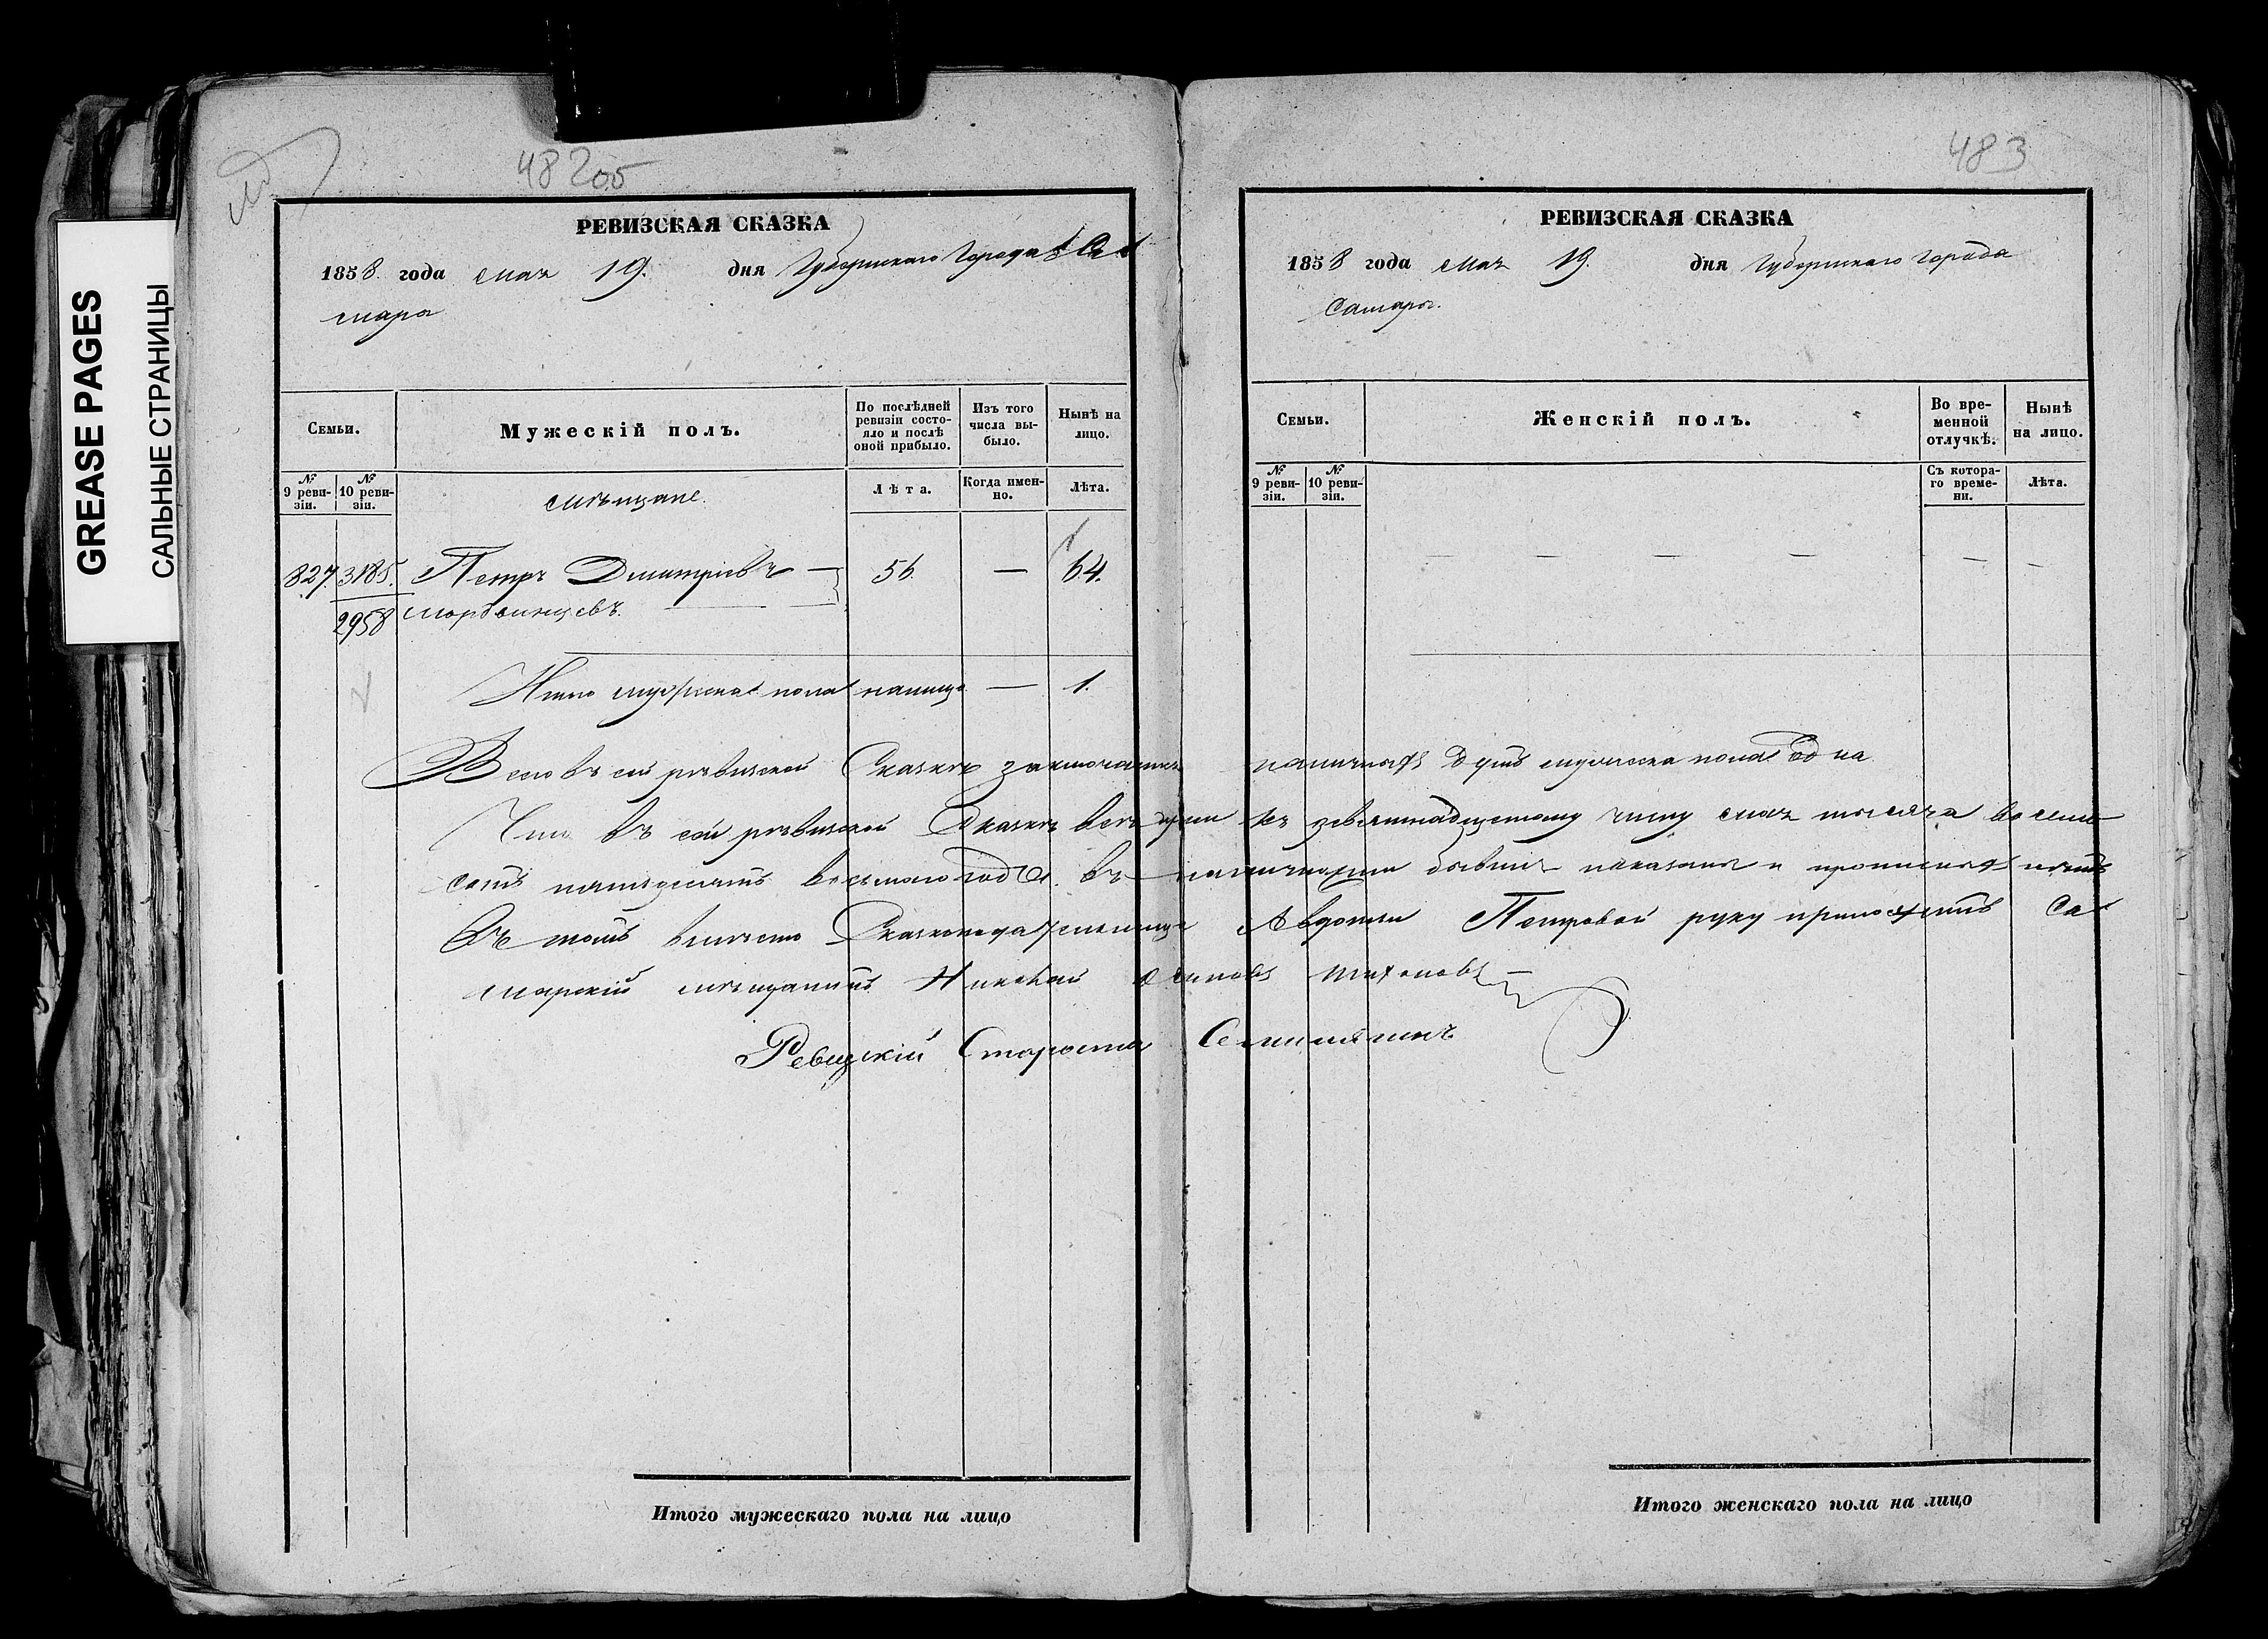 GREASE PAGES
САЛЬНЫЕ СТРАНИЦЫ
482об
РЕВИЗСКАЯ СКАЗКА
1858. года мая 19. дня Губернскаго Города Са
мары
Семьи.
Мужескій полъ.
По послѣдней ревизіи состояло и послѣ оной прибыло.
Изъ того числа выбыло.
Нынѣ на лицо.
№ 9 ревизіи.
№ 10 ревизіи.
мѣщане.
Лѣта.
Когда именно.
Лѣта.
827. 3185. Петръ Дмитріевъ — 56. — 64.
2958 Мордвинцевъ.
Итого мужска пола налицо — 1.
483
РЕВИЗСКАЯ СКАЗКА
1858 года мая 19. дня Губернскаго города
Самары.
Семьи.
Женскій полъ.
Во временной отлучкѣ.
Нынѣ на лицо.
№ 9 ревизіи.
№ 10 ревизіи.
Съ котораго времени.
Лѣта.
— — — — — —
Всего въ сей ревизской Сказкѣ заключается наличныхъ душъ мужеска пола одна
Что въ сей ревизской Сказкѣ всѣ души къ девятнадцатому числу мая тысяча восем
сотъ пятьдесятъ восьмого года въ наличности бывшие показаны и прописныхъ нѣтъ
Въ томъ вмѣсто Сказкоподательницы Авдотьи Петровой руку приложилъ Са
марскій мѣщанинъ Николай Осиповъ Тихоновъ
Ревизскій Староста
Итого мужескаго пола на лицо
Итого женскаго пола на лицо